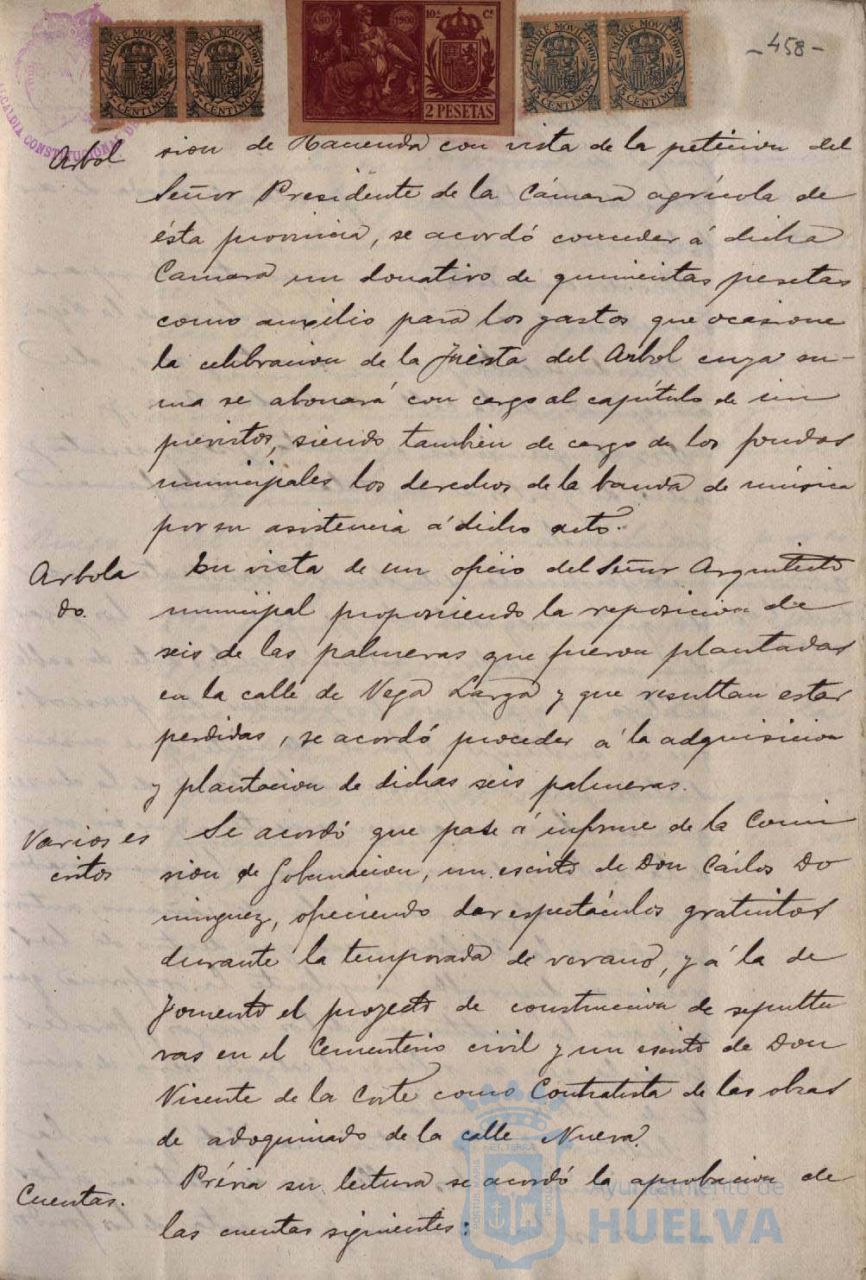 -458-
TIMBRE MOVIL 1900
TIMBRE MOVIL 1900
AÑO 1900
10ª Cª
2 PESETAS
TIMBRE MOVIL 1900
15 CENTIMOS
TIMBRE MOVIL 1900
15 CENTIMOS
ALCALDIA CONSTITUCIONAL DE
Arbol
sion de Hacienda con vista de la peticion del
Señor Presidente de la Cámara agrícola de
ésta provincia, se acordó conceder á dicha
Camara un donativo de quinientas pesetas
como auxilio para los gastos que ocasione
la celebracion de la fiesta del Arbol cuya su-
ma se abonará con cargo al capítulo de im
previstos, siendo tambien de cargo de los fondos
municipales los derechos de la banda de música
por su asistencia á dicho acto.
Arbola
do.
En vista de un oficio del Señor Arquitecto
municipal proponiendo la reposicion de
seis de las palmeras que fueron plantadas
en la calle de Vega Larga y que resultan estar
perdidas, se acordó proceder á la adquisicion
y plantacion de dichas seis palmeras.
Varios es
critos
Se acordó que pase á informe de la Comi
sion de Gobernacion, un escrito de Don Cárlos Do
minguez, ofreciendo dar espectáculos gratuitos
durante la temporada de verano, y á la de
Fomento el proyecto de construccion de sepultu
ras en el Cementerio civil y un escrito de Don
Vicente de la Corte como Contratista de las obras
de adoquinado de la calle Nueva.
Cuentas.
Prévia su lectura se acordó la aprobacion de
las cuentas siguientes:
Ayuntamiento de
HUELVA